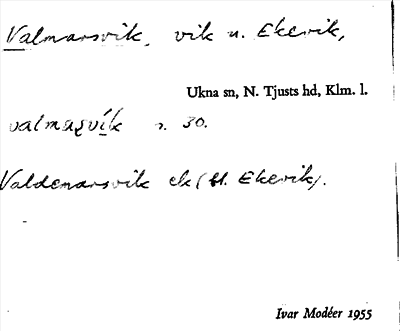 Valmarsvik, vik u. Ekevik,
Ukna sn, N. Tjusts hd, Klm. l.
valmaʂvík s. 30.
Valdemarsvik ek (st. Ekevik).
Ivar Modéer 1955